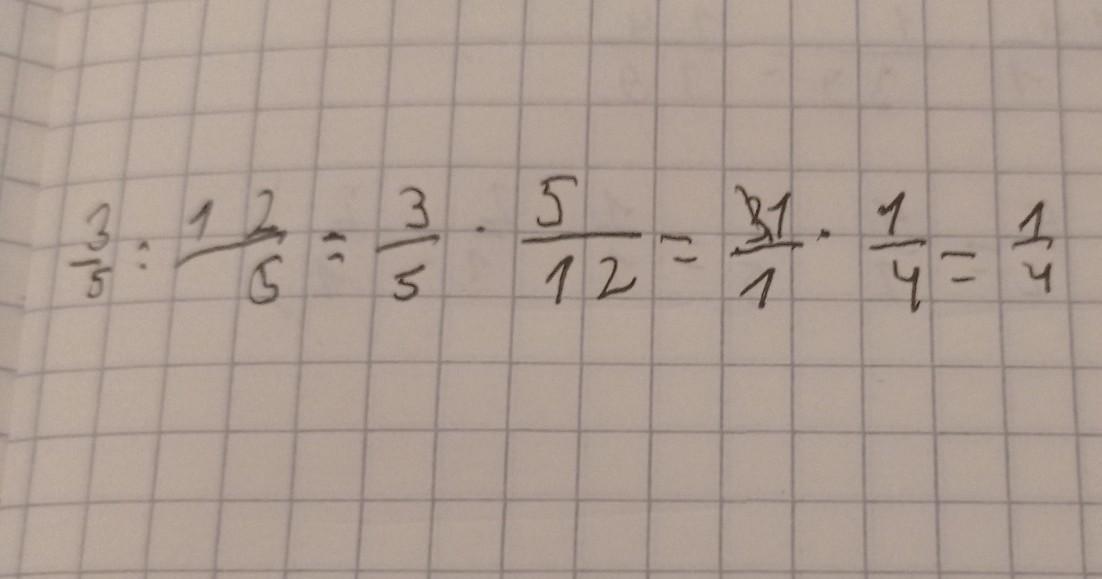 3/5 : 12/5 = 3/5 · 5/12 = 1/1 · 1/4 = 1/4